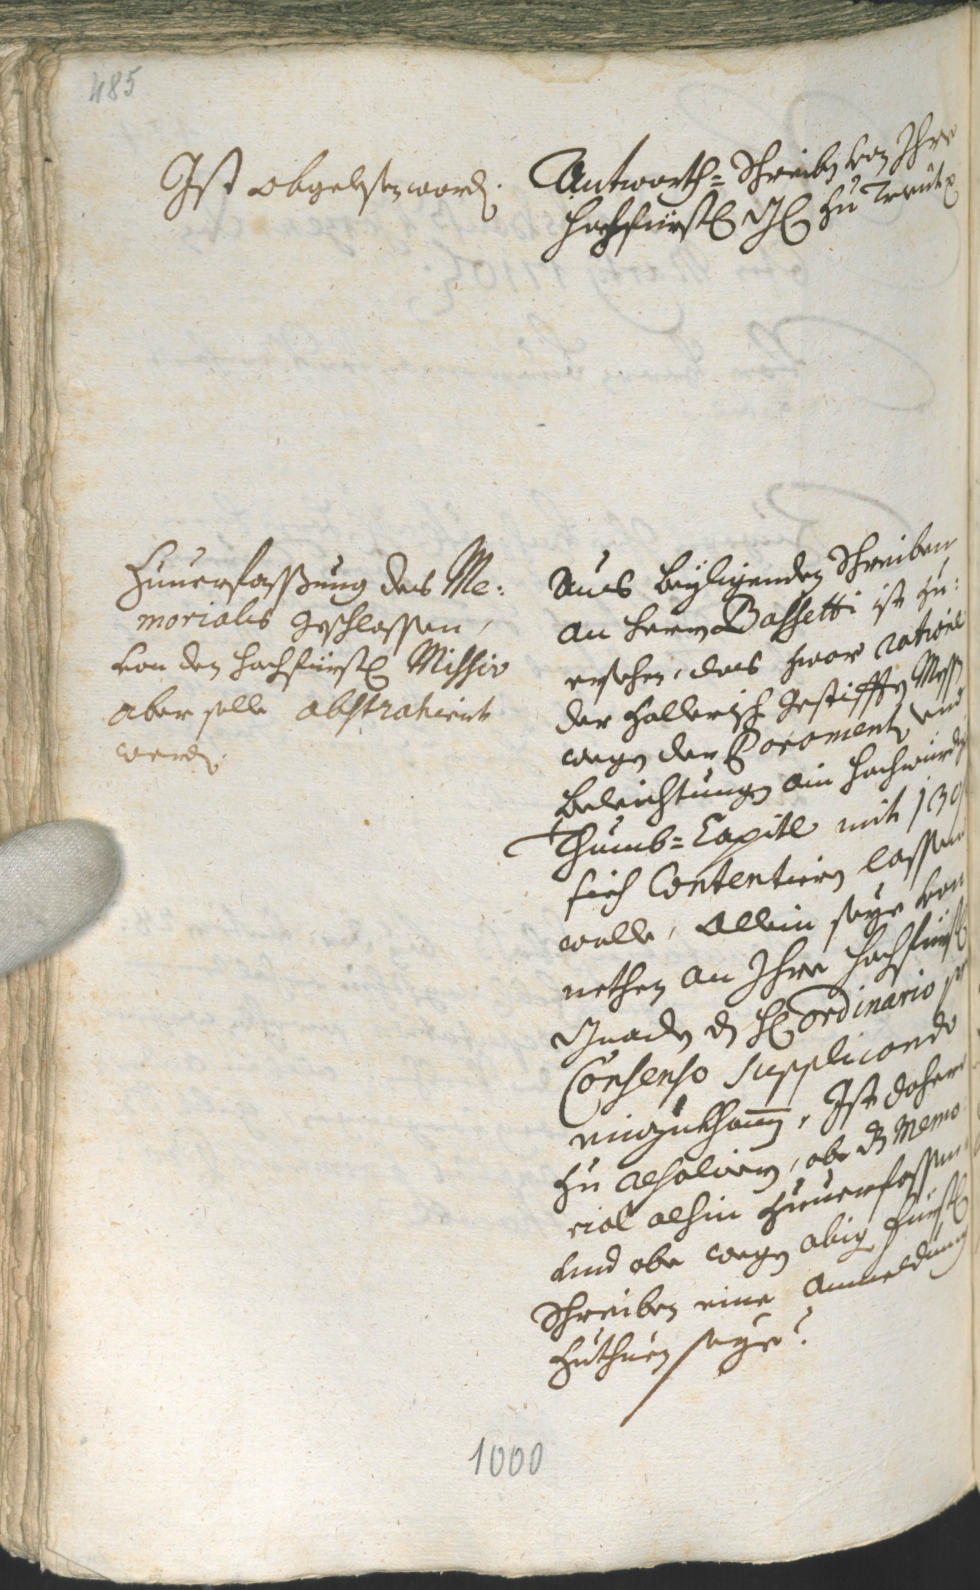 485
Ist abgelesen word.
Antworth= Schreiben von Ihro
hochfürstl. Gl. zu Trient
Zuuerfassung des Me:
morialis geschlossen,
von den hochfürstl. Missiv
aber solle abstrahiert
werd.
Aus beyligenden Schreiben
an herrn Bassetti ist zu:
ersehen, das zwar ratione
der hallerisch gestifften Mess
wegen der Paromenten und
beleichtungen ain hochwürdig
Thumb=Capitl mit 130
sich Contentiern lassen
wolle, Allein seye von
nethen an Ihro hochfürstl.
Gnaden als Ordinario pro
Consenso supplicando
einzukhomen, Ist daher
zu resolviern, ob das Memo
rial alhin zuuerfassen
und ob wegen obig fürstl.
Schreiben eine Anmeldung
zuthuen seye?
1000